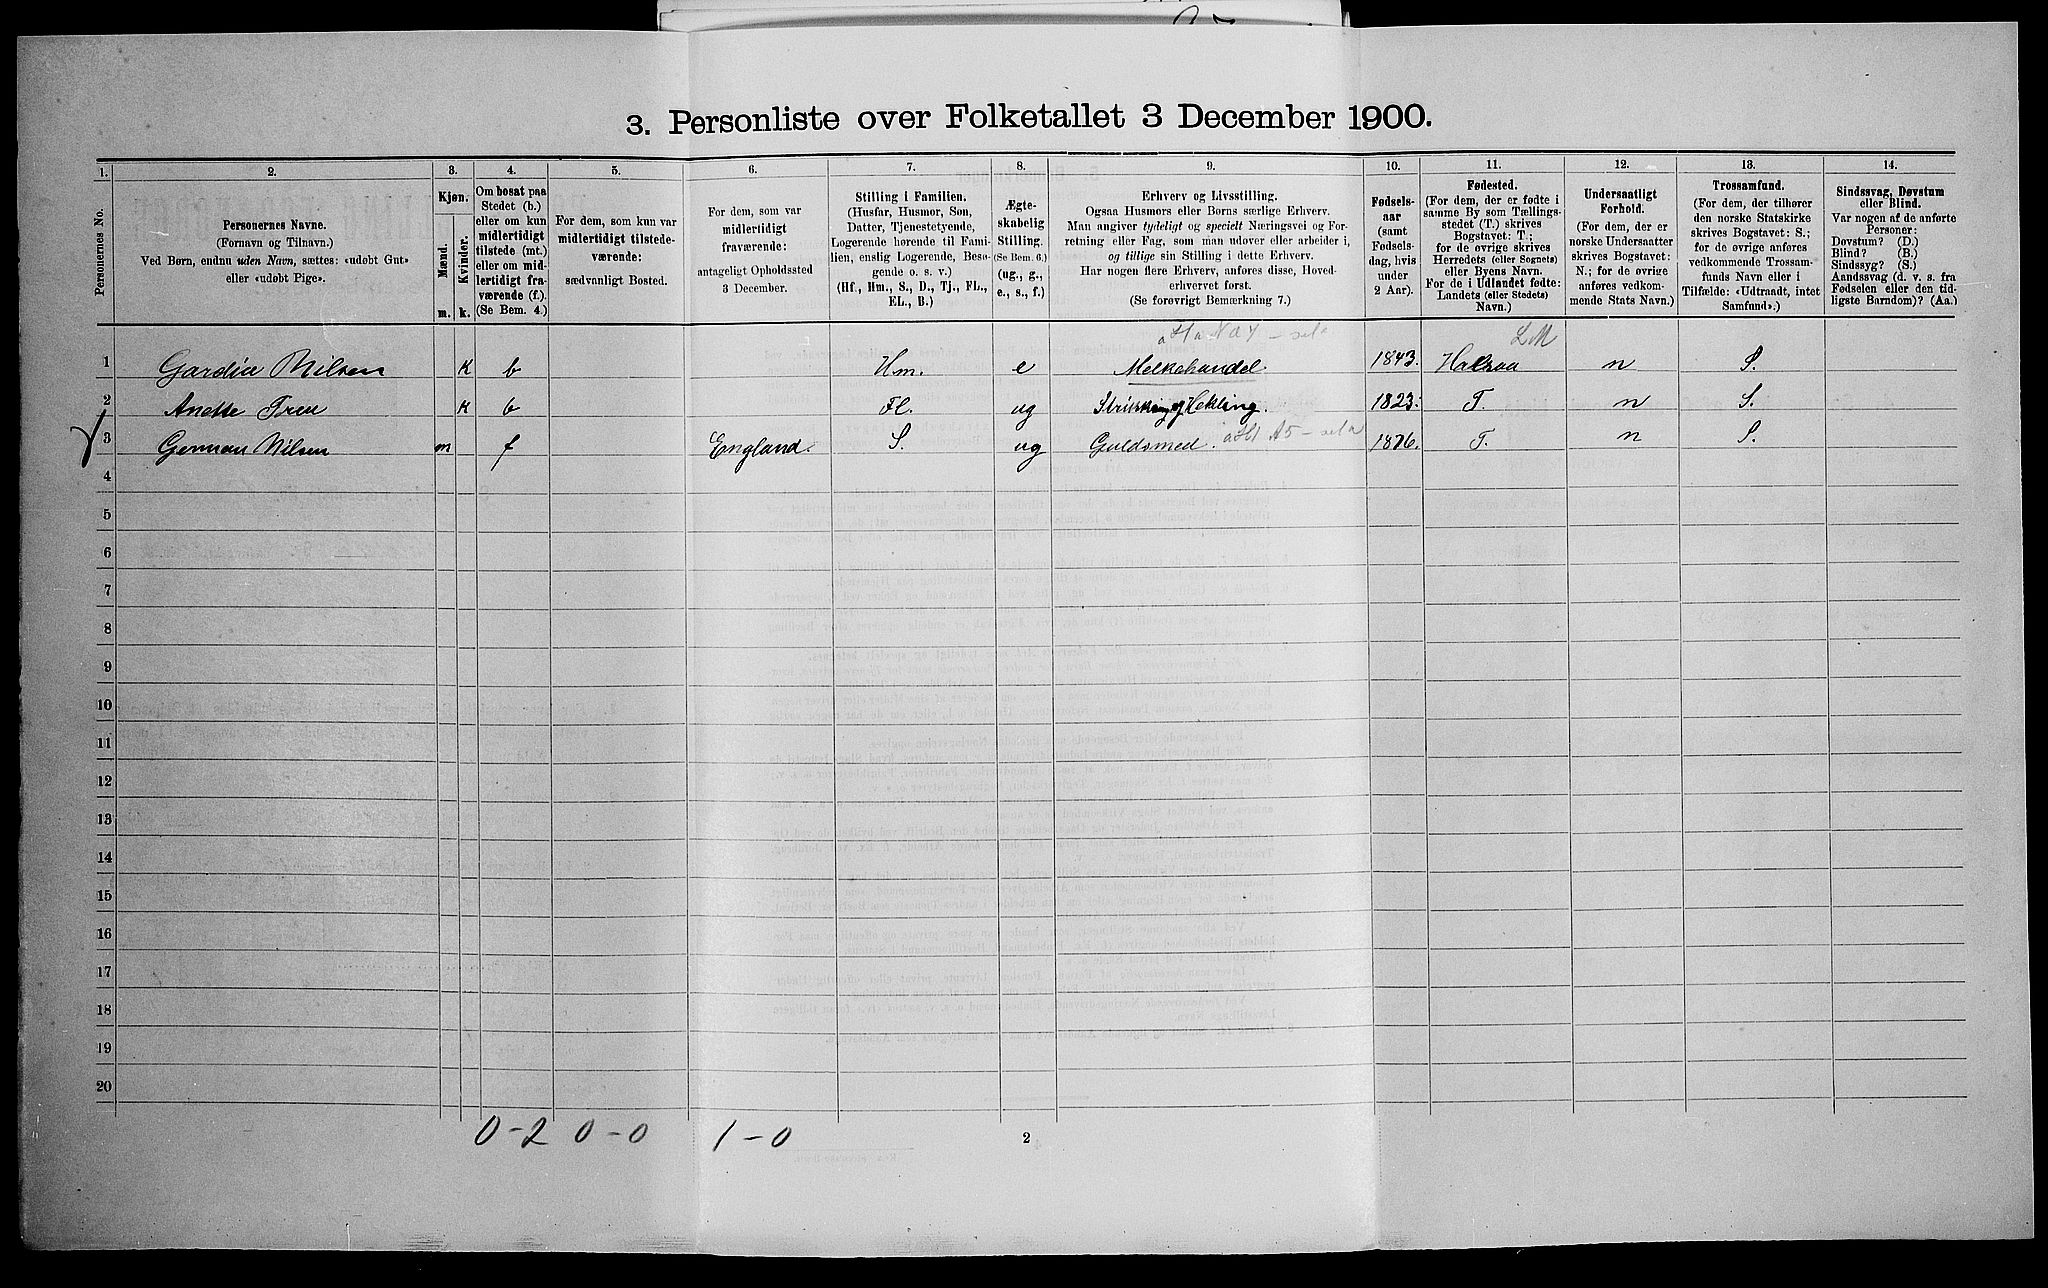 3. Personliste over Folketallet 3 December 1900.
1. 2. 3. 4. 5. 6. 7. 8. 9. 10. 11. 12. 13. 14.
Personernes No.
Personernes Navne.
(Fornavn og Tilnavn.)
Ved Børn, endnu uden Navn, sættes: «udøbt Gut»
eller «udøbt Pige».
Kjøn.
Mænd.
Kvinder.
m. k.
Om bosat paa
Stedet (b.)
eller om kun
midlertidigt
tilstede (mt.)
eller om mid-
lertidigt fra-
værende (f.)
(Se Bem. 4.)
For dem, som kun var
midlertidigt tilstede-
værende:
sædvanligt Bosted.
For dem, som var
midlertidigt
fraværende:
antageligt Opholdssted
3 December.
Stilling i Familien.
(Husfar, Husmor, Søn,
Datter, Tjenestetyende,
Logerende hørende til Fami-
lien, enslig Logerende, Besø-
gende o. s. v.)
(Hf., Hm., S., D., Tj., FL.,
EL., B.)
Ægte-
skabelig
Stilling.
(Se Bem. 6.)
(ug., g.,
e., s., f.)
Erhverv og Livsstilling.
Ogsaa Husmors eller Børns særlige Erhverv.
Man angiver tydeligt og specielt Næringsvei og For-
retning eller Fag, som man udøver eller arbeider i,
og tillige sin Stilling i dette Erhverv.
Har nogen flere Erhverv, anføres disse, Hoved-
erhvervet først.
(Se forøvrigt Bemærkning 7.)
Fødsels-
aar
(samt
Fødsels-
dag, hvis
under
2 Aar).
Fødested.
(For dem, der er fødte i
samme By som Tællings-
stedet (T.) skrives
Bogstavet: T.;
for de øvrige skrives
Herredets (eller Sognets)
eller Byens Navn.
For de i Udlandet fødte:
Landets (eller Stedets)
Navn.)
Undersaatligt
Forhold.
(For dem, der er
norske Undersaatter
skrives Bogstavet:
N.; for de øvrige
anføres vedkom-
mende Stats Navn.)
Trossamfund.
(For dem, der tilhører
den norske Statskirke
skrives Bogstavet: S.;
for de øvrige anføres
vedkommende Trossam-
funds Navn eller i
Tilfælde: «Udtraadt, intet
Samfund».)
Sindssvag, Døvstum
eller Blind.
Var nogen af de anførte
Personer:
Døvstum? (D.)
Blind? (B.)
Sindssyg? (S.)
Aandssvag (d. v. s. fra
Fødselen eller den tid-
ligste Barndom)? (Aa.)
LM
1 Gardia Nilsen K b Hm. e Melkehandel 1843. Halsaa n S.
2 Anette Treu K b Fl. ug Hekling. 1823. T. n S.
3 German Nilsen m f England. S. ug Guldsmed. 1876. T. n S.
4
5
6
7
8
9
10
11
12
13
14
15
16
17
18
19
20
0-2 0-0 1-0
2